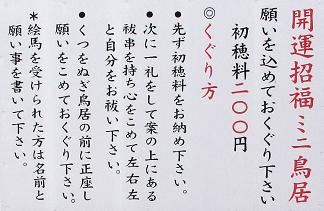 開運招福ミニ鳥居
願いを込めておくぐり下さい
初穂料二〇〇円
◎くぐり方
●先ず初穂料をお納め下さい。
●次に一礼をして案の上にある
祓串を持ち心をこめて左右左
と自分をお祓い下さい。
●くつをぬぎ鳥居の前に正座し
願いをこめておくぐり下さい。
＊絵馬を受けられた方は名前と
願い事を書いて下さい。